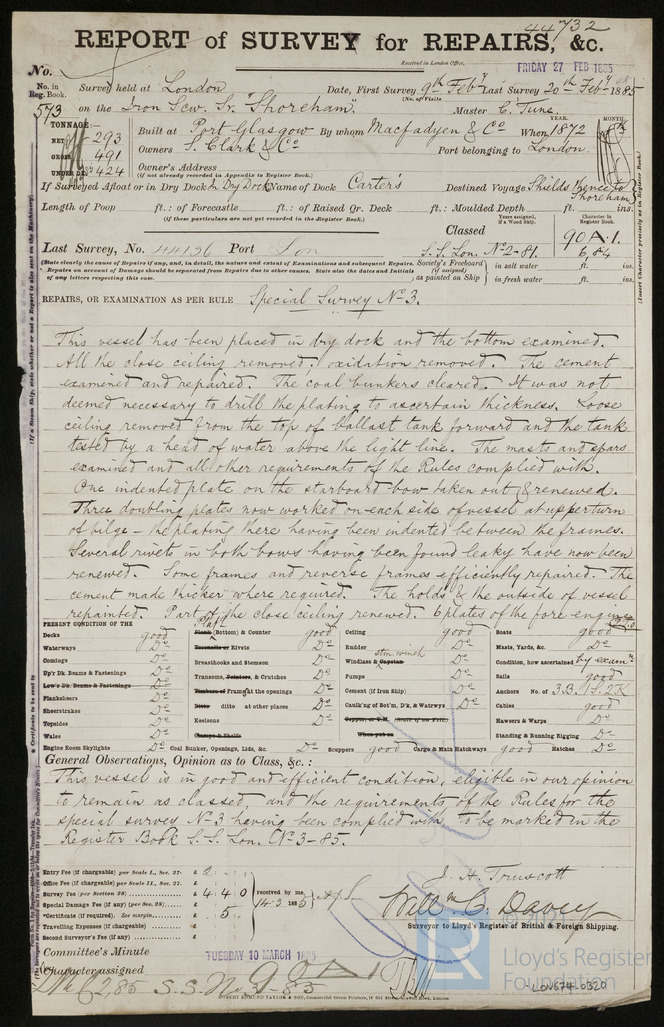 44732
REPORT of SURVEY for REPAIRS, &c.
Received in London Office, FRIDAY 27 FEB 1885
No.
No. in Reg. Book. 573
Survey held at London Date, First Survey 9th Feby Last Survey 20th Feby 1885
(No. of Visits
on the Iron Scw. Sr. "Shoreham" Master C. Tune
TONNAGE:
NET 293
GROSS 491
UNDER DK. 424
Built at Port Glasgow By whom Macfadyen & Co When 1872
YEAR. MONTH.
Owners S. Clark & Co Port belonging to London
Owner's Address
(If not already recorded in Appendix to Register Book.)
If Surveyed Afloat or in Dry Dock In Dry Dock Name of Dock Carter's Destined Voyage Shields thence to Shoreham
Length of Poop ft.: of Forecastle ft.: of Raised Qr. Deck ft.: Moulded Depth ft. ins.
(if these particulars are not yet recorded in the Register Book.)
Years assigned, if a Wood Ship. Character in Register Book.
Classed 90A.1.
Last Survey, No. 44136 Port Lon S.S. Lon. No 2-81. 6,84
(State clearly the cause of Repairs if any, and, in detail, the nature and extent of Examinations and subsequent Repairs.
Repairs on account of Damage should be separated from Repairs due to other causes. State also the dates and Initials
of any letters respecting this case.)
Society's Freeboard (if assigned) as painted on Ship
in salt water ft. ins.
in fresh water ft. ins.
REPAIRS, OR EXAMINATION AS PER RULE Special Survey No 3.
This vessel has been placed in dry dock and the bottom examined.
All the close ceiling removed: oxidation removed. The cement
examined and repaired. The coal bunkers cleared. It was not
deemed necessary to drill the plating to ascertain thickness. Loose
ceiling removed from the top of ballast tank forward and the tank
tested by a head of water above the light line. The masts and spars
examined and all other requirements of the Rules complied with.
One indented plate on the starboard bow taken out & renewed.
Three doubling plates now worked on each side of vessel at upperturn
of bilge - the plating there having been indented between the frames.
Several rivets in both bows having been found leaky have now been
renewed. Some frames and reverse frames efficiently repaired. The
cement made thicker where required. The holds & the outside of vessel
repainted. Part of the close ceiling renewed. 6 plates of the fore
PRESENT CONDITION OF THE
Decks good
Waterways Do
Comings Do
Up'r Dk. Beams & Fastenings Do
Low'r Dk. Beams & Fastenings
Planksheers Do
Sheerstrakes Do
Topsides Do
Wales Do
Engine Room Skylights Do
Plank (Bottom) & Counter good
Rivets Do
Breasthooks and Stemson Do
Transoms, Pointers, & Crutches Do
Timbers of Frame at the openings Do
Ditto ditto at other places Do
Keelsons Do
Clamps & Shelfs
Coal Bunker, Openings, Lids, &c. Do
Ceiling good
Rudder Do
Windlass & Capstan Do
Pumps Do
Cement (if iron Ship) Do
Caulk'g of Bot'm, D'k, & Watrwys Do
When put on
Scuppers good Cargo & Main Hatchways good Hatches Do
Boats good
Masts, Yards, &c. Do
Condition, how ascertained by examn
Sails good
Anchors No. of 3.B. 1.S. 2.K
Cables good
Hawsers & Warps Do
Standing & Running Rigging Do
General Observations, Opinion as to Class, &c.:
This vessel is in good and efficient condition, eligible in our opinion
to remain as classed, and the requirements of the Rules for the
special survey No 3 having been complied with, to be marked in the
Register Book S.S. Lon. No 3-85.
Entry Fee (if chargeable) per Scale I., Sec. 27. £
Office Fee (if chargeable) per Scale II., Sec. 27. £
Survey Fee (per Section 28) £ 4 4 0
Special Damage Fee (if any) (per Sec. 28) £
*Certificate (if required). See margin. £ 5
Travelling Expenses (if chargeable) £
Second Surveyor's Fee (if any) £
received by me,
J. H. Truscott
Willm C. Davey
Surveyor to Lloyd's Register of British & Foreign Shipping.
Committee's Minute TUESDAY 10 MARCH 1885
Character assigned 90A1
LMC 2,85 S.S. No 3-85
ROBERT EDMUND TAYLOR & SON, Commercial Steam Printers, 19 Old Street, Goswell Road, London
Lloyd's Register
Foundation
LON674-0320